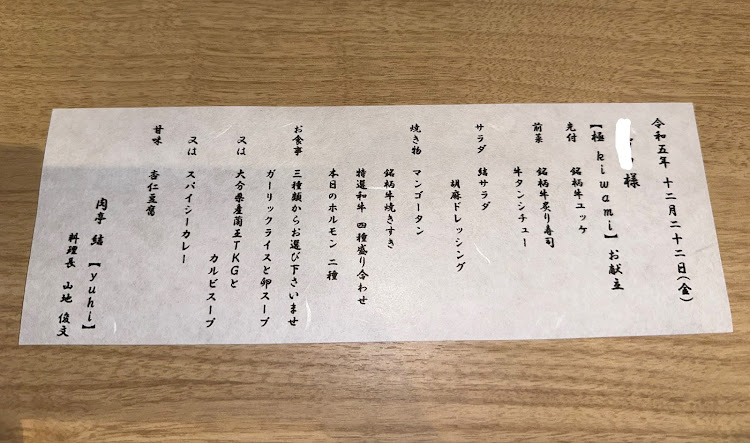 令和五年 十二月二十二日(金)
様
【極 kiwami】お献立
先付 銘柄牛ユッケ
前菜 銘柄牛炙り寿司
牛タンシチュー
サラダ 結サラダ
胡麻ドレッシング
焼き物 マンゴータン
銘柄牛焼きすき
特選和牛 四種盛り合わせ
本日のホルモン 二種
お食事 三種類からお選び下さいませ
ガーリックライスと卵スープ
又は 大分県産蘭王TKGと
カルビスープ
又は スパイシーカレー
甘味 杏仁豆腐
肉亭 結 【yuhi】
料理長 山地 俊文